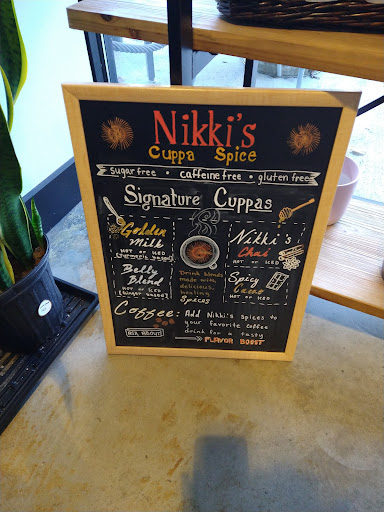 Nikki's
Cuppa Spice
sugar free • caffeine free • gluten free
Signature Cuppas
Golden
Milk
HOT or ICED
(turmeric based)
Nikki's
Chai
HOT or ICED
Belly
Blend
HOT or ICED
(ginger based)
Drink blends
made with
delicious,
healing
spices
Spicy
Cacao
HOT or ICED
Coffee: Add Nikki's spices to
your favorite coffee
drink for a tasty
ASK ABOUT
FLAVOR BOOST